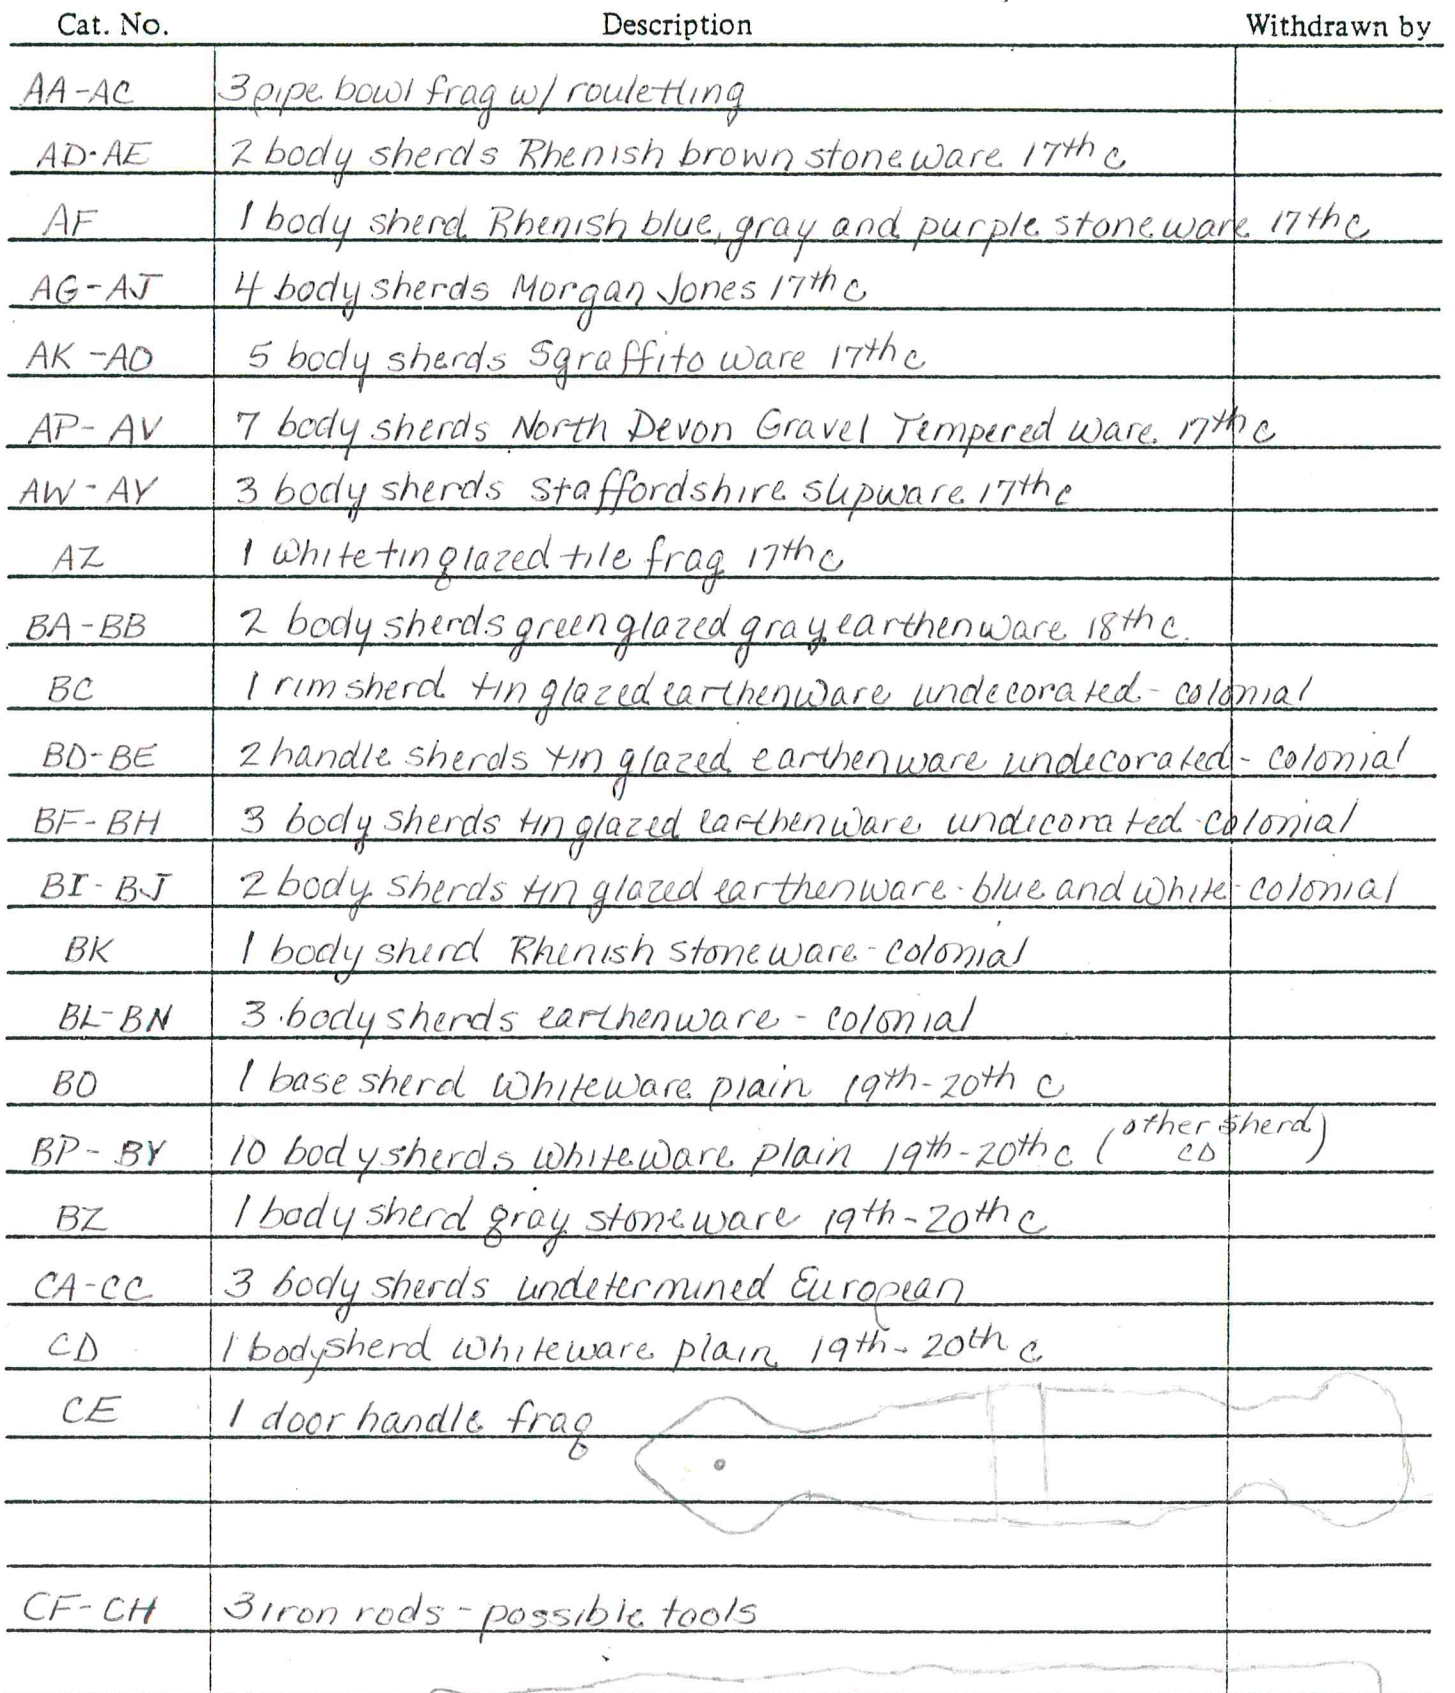 Cat. No. Description Withdrawn by
AA-AC 3 pipe bowl frag w/ rouletting
AD-AE 2 body sherds Rhenish brown stoneware 17th c
AF 1 body sherd Rhenish blue, gray and purple stoneware 17th c
AG-AJ 4 body sherds Morgan Jones 17th c
AK-AO 5 body sherds Sgraffito ware 17th c
AP-AV 7 body sherds North Devon Gravel Tempered ware 17th c
AW-AY 3 body sherds Staffordshire slipware 17th c
AZ 1 white tin glazed tile frag 17th c
BA-BB 2 body sherds green glazed gray earthenware 18th c.
BC 1 rim sherd tin glazed earthenware undecorated - colonial
BD-BE 2 handle sherds tin glazed earthenware undecorated - colonial
BF-BH 3 body sherds tin glazed earthenware undicorated - colonial
BI-BJ 2 body sherds tin glazed earthenware - blue and white - colonial
BK 1 body sherd Rhenish stoneware - colonial
BL-BN 3 body sherds earthenware - colonial
BO 1 base sherd whiteware plain 19th-20th c
BP-BY 10 body sherds whiteware plain 19th-20th c (other sherd CD)
BZ 1 body sherd gray stoneware 19th-20th c
CA-CC 3 body sherds undetermined European
CD 1 body sherd whiteware plain 19th-20th c
CE 1 door handle frag
CF-CH 3 iron rods - possible tools